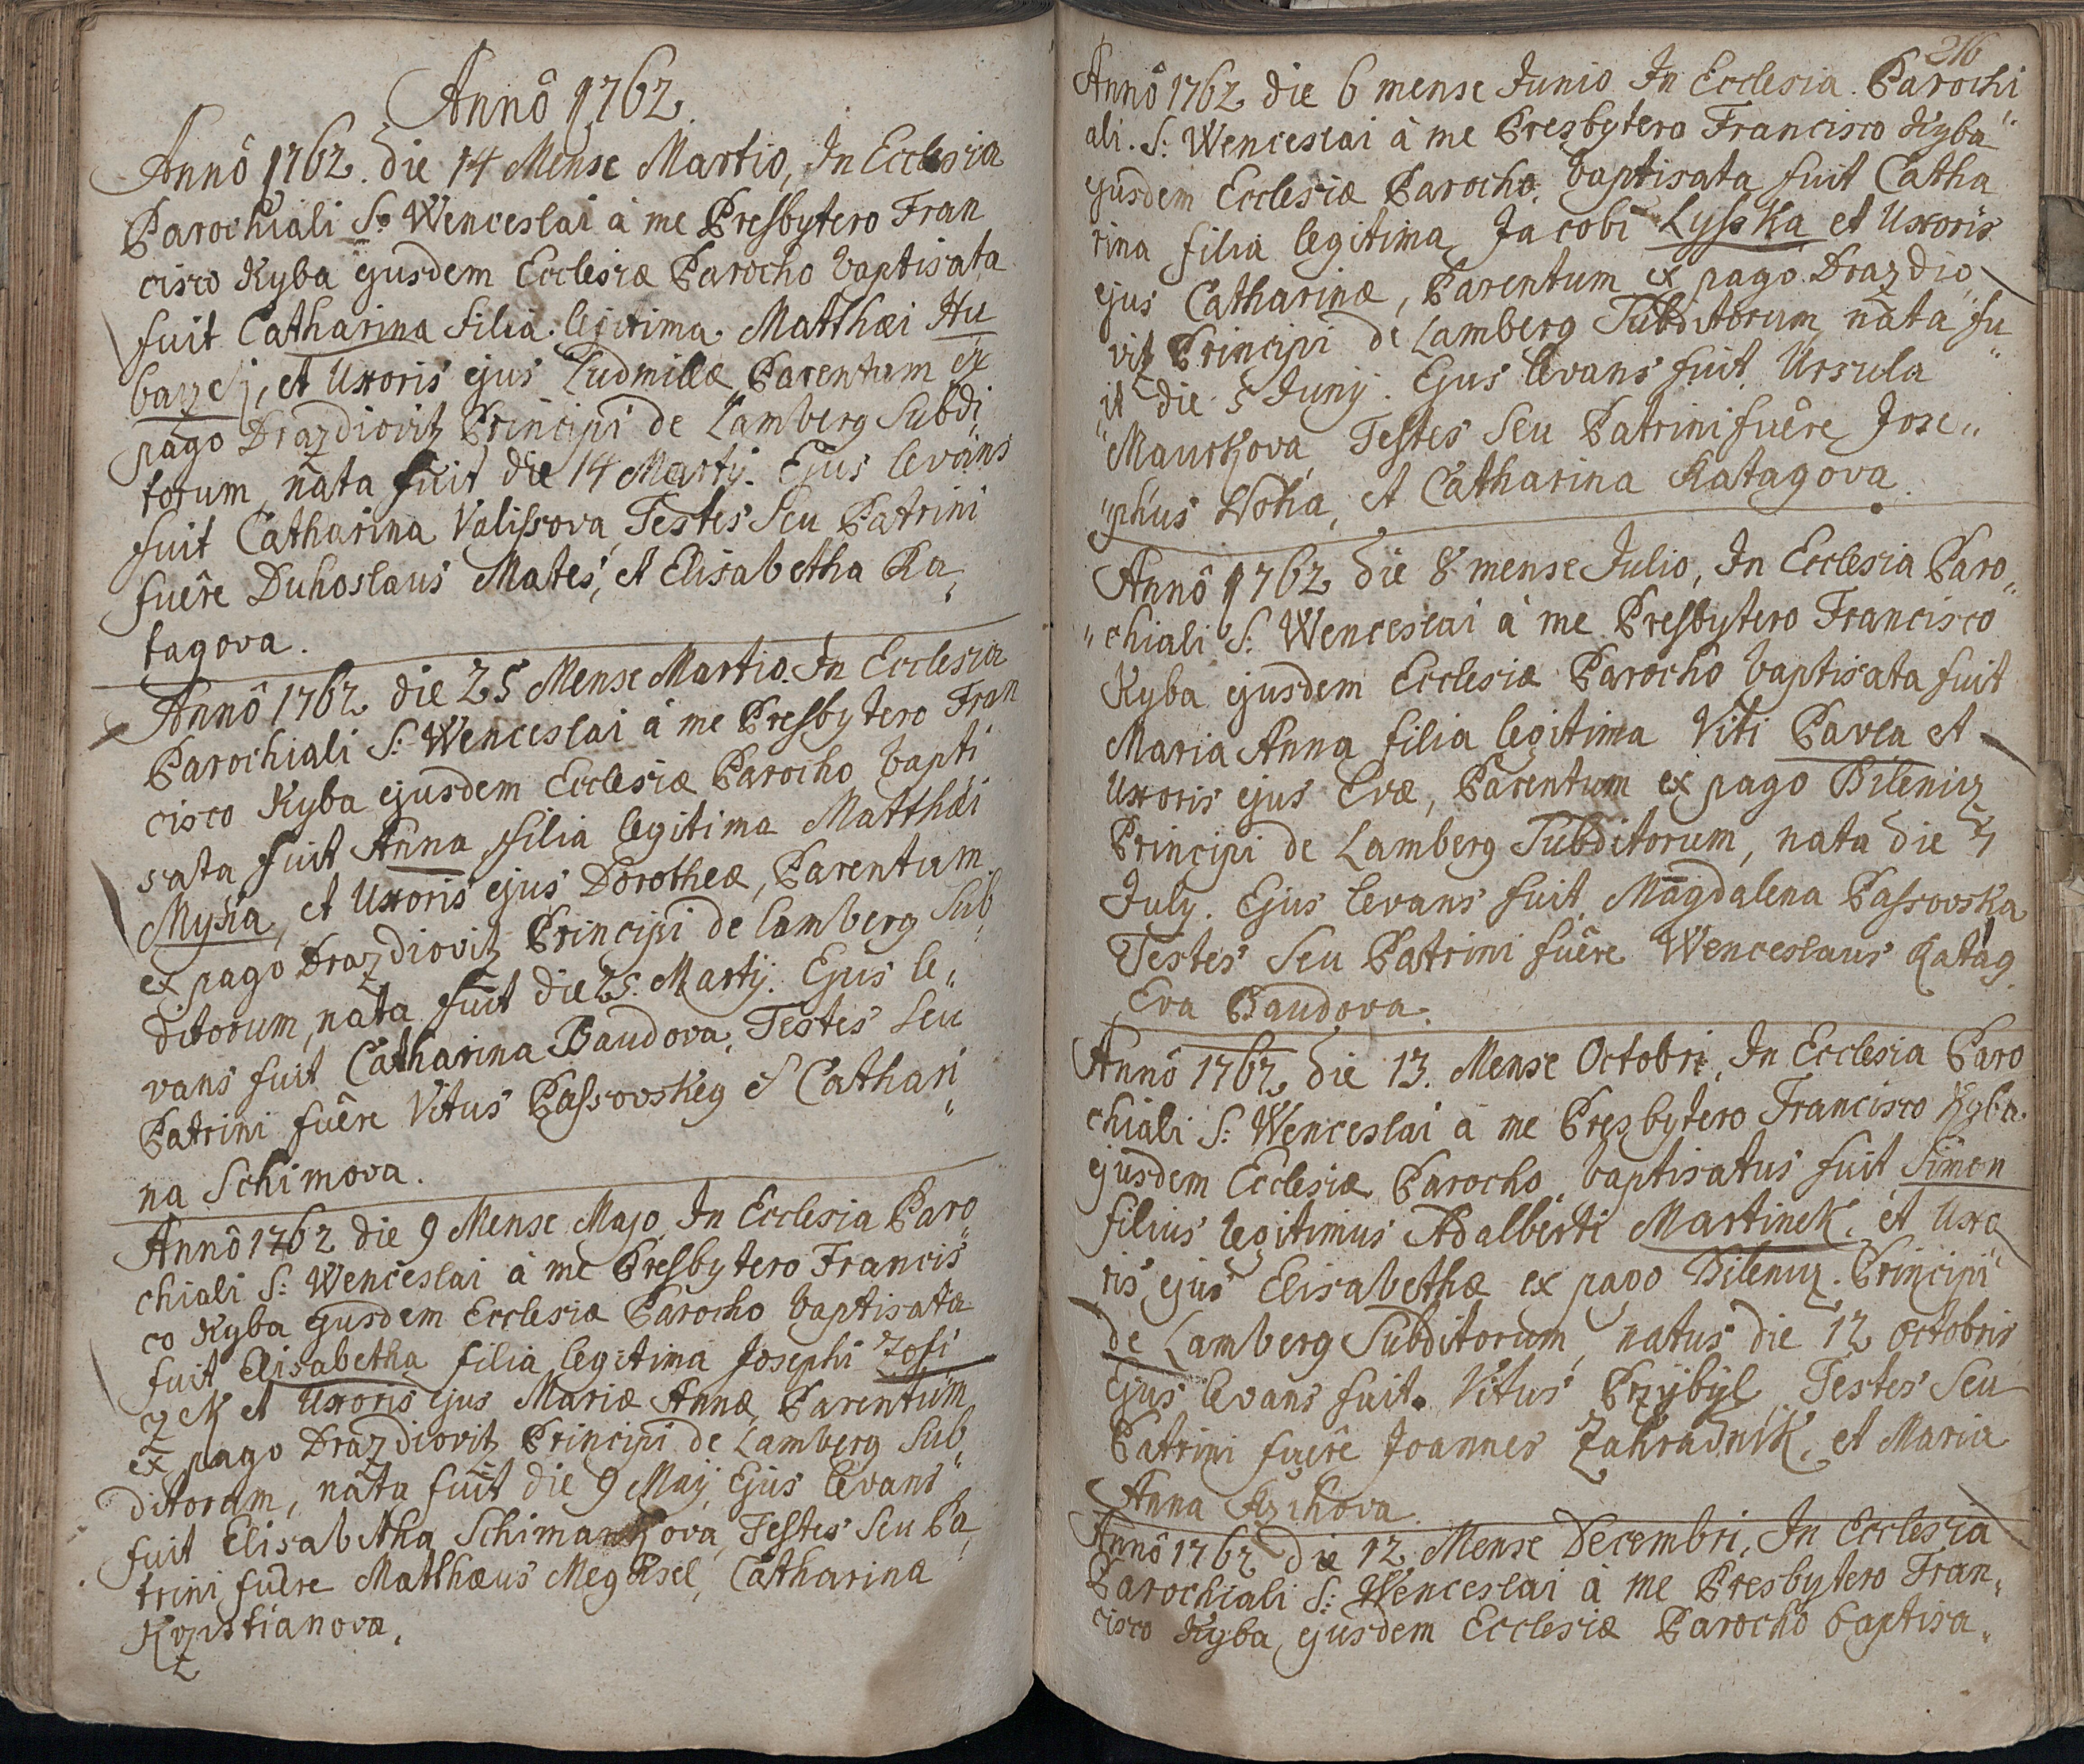 Annô 1762.
Annô 1762. die 14 Mense Martio, In Ecclesia
Parochiali S: Wenceslai à me Presbytero Fran
cisco Kyba ejusdem Ecclesiæ Parocho baptisata
fuit Catharina filia legitima Matthæi Hu
et Uxoris ejus Ludmillæ, Parentum ex
pago Drazdiovitz Principi de Lamberg Subdi
torum, nata fuit die 14 Martij. Ejus levans
fuit Catharina Valissova, Testes Seu Patrini
fuêre Duhoslaus Mates, et Elisabetha Ka„
tagova.
Annô 1762 die 25 Mense Martio. In Ecclesia
Parochiali S: Wenceslai à me Presbytero Fran
cisco Kyba ejusdem Ecclesiæ Parocho bapti
sata fuit Anna filia legitima Matthæi
et Uxoris ejus Dorotheæ, Parentum
ex pago Drazdiovitz Principi de Lamberg Sub„
ditorum, nata fuit die 25. Martij. Ejus le„
vans fuit Catharina Baudova, Testes Seu
Patrini fuêre Vitus Passovskey et Cathari„
na Schimova.
Annô 1762 die 9 Mense Majo, In Ecclesia Paro„
chiali S: Wenceslai à me Presbytero Francis„
co Kyba ejusdem Ecclesiæ Parocho baptisata
fuit Elisabetha filia legitima Josephi Zofi
zek et Uxoris ejus Mariæ Annæ, Parentum
ex pago Drazdiovitz Principi de Lamberg Sub„
ditorum, nata fuit die 9 Maij, Ejus levans
fuit Elisabetha Testes Seu Pa„
trini fuêre Matthæus Catharina
Krzistianova.
216
Annô 1762 die 6 mense Junio In Ecclesia Parochi
ali. S: Wenceslai à me Presbytero Francisco Kyba
ejusdem Ecclesiæ Parocho. baptisata fuit Catha
rina filia legitima Jacobi Lysska et Uxoris
ejus Catharinæ, Parentum ex pago Drazdio„
vitz Principi de Lamberg Subditorum, nata fu„
it die 5 Junij. Ejus levans fuit Ursula
Testes Seu Patrini fuêre Jose„
„phus et Catharina Katagova.
Annô 1762 die 8 mense Julio, In Ecclesia Paro„
„chiali S: Wenceslai à me Presbytero Francisco
Kyba ejusdem Ecclesiæ Parocho baptisata fuit
Maria Anna filia legitima Viti Pavla et
Uxoris ejus Evæ, Parentum ex pago Bileniz
Principi de Lamberg Subditorum, nata die 7
July. Ejus levans fuit Magdalena Passovska
Testes Seu Patrini fuêre Wenceslaus Katag
Eva Baudova.
Annô 1762 die 13. Mense Octobri, In Ecclesia Paro
chiali S: Wenceslai à me Presbytero Francisco Kyba
ejusdem Ecclesiæ Parocho baptisatus fuit Simon
filius legitimus Adalberti Martinek, et Uxo
ris ejus Elisabethæ ex pago Bileniz. Principi
de Lamberg Subditorum, natus die 12 Octobris
Ejus levans fuit. Vitus Przybyl, Testes Seu
Patrini fuêre Joannes Zahradnik, et Maria
Anna
Annô 1762 die 12 Mense Decembri, In Ecclesia
Parochiali S: Wenceslai à me Presbytero Fran„
cisco Kyba ejusdem Ecclesiæ Parocho baptisa„